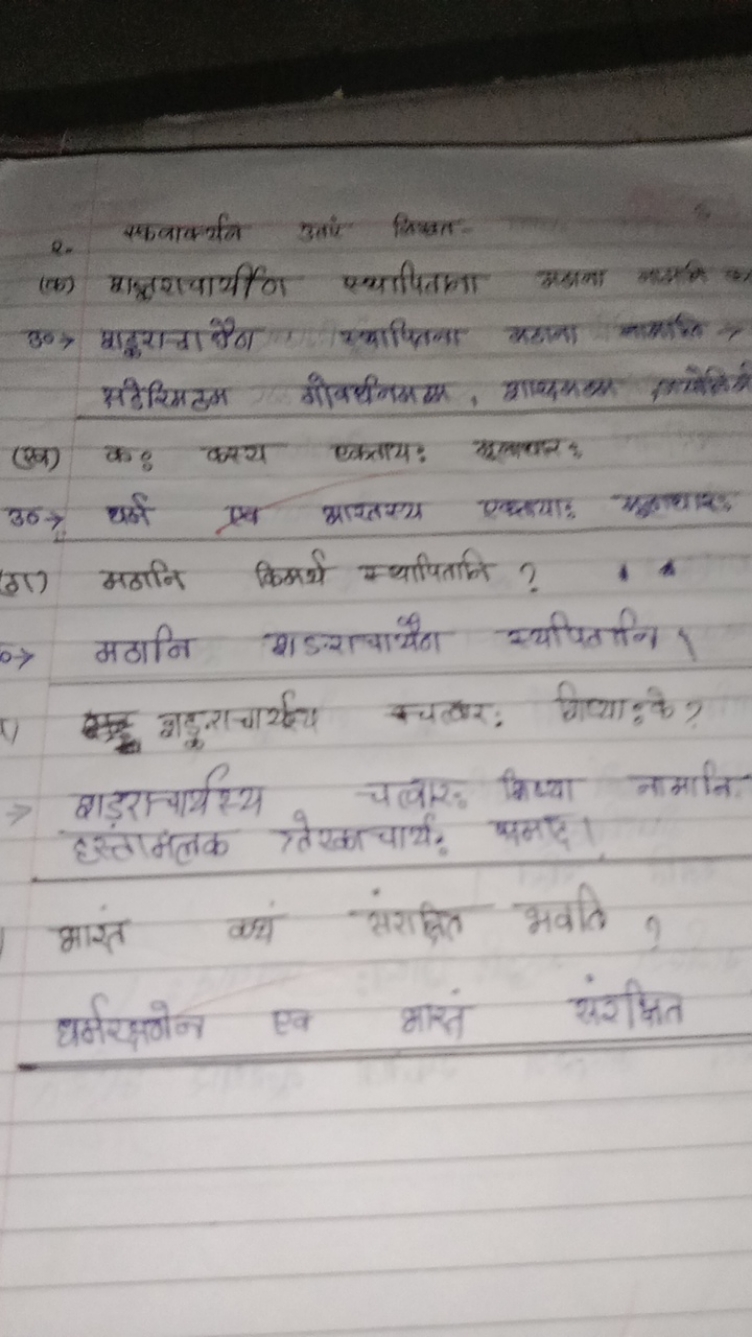 २. एकवाक्येन उत्तरं लिखत-
(क) शङ्कराचार्येण स्थापिताना मठाना नामानि
उ०→ शङ्कराचार्येण स्थापितना मठाना नामानि →
गोवर्धनमठम्, शारदामठम्
(ख) कः कस्य एकतायः मूलाधारः
उ०→ धर्म एव भारतस्य एकतायाः मूलाधारः
(ग) मठानि किमर्थ स्थापितानि ?
→ मठानि शङराचार्येण स्थपितानि ।
शङ्कराचार्यस्य चत्वारः शिष्याः के ?
→ शङराचार्यस्य चत्वारः शिष्या नामानि
हस्तामलक
भारतं कथं संरक्षित भवति ?
धर्मरक्षणेन एव भारतं संरक्षित